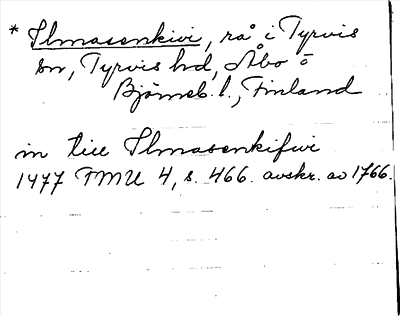 * Ilmasenkivi, rå i Tyrvis
sn, Tyrvis hd, Åbo o
Björneb. l., Finland
in till Ilmasenkifwi
1477 FMU 4, s. 466. avskr. av 1766.